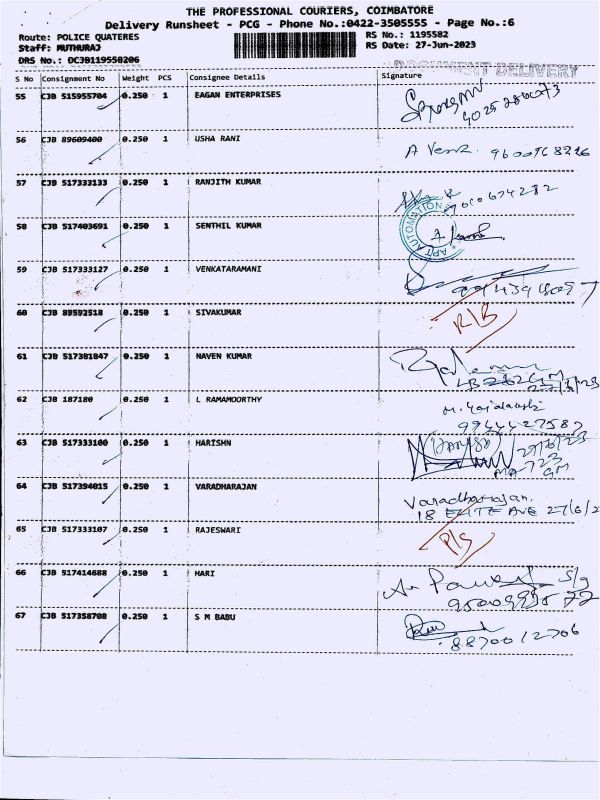 THE PROFESSIONAL COURIERS, COIMBATORE
Delivery Runsheet - PCG - Phone No.:0422-3505555 - Page No.:6
Route: POLICE QUATERES
RS No.: 1195582
Staff: MUTHURAJ
RS Date: 27-Jun-2023
DRS No.: DCJB119558206
DOCUMENT DELIVERY
S No Consignment No Weight PCS Consignee Details Signature
55 CJB 515955704 0.250 1 EAGAN ENTERPRISES
56 CJB 89609400 0.250 1 USHA RANI
57 CJB 517333133 0.250 1 RANJITH KUMAR
58 CJB 517403691 0.250 1 SENTHIL KUMAR
APT AUTOMATION
59 CJB 517333127 0.250 1 VENKATARAMANI
60 CJB 89592518 0.250 1 SIVAKUMAR
61 CJB 517381847 0.250 1 NAVEN KUMAR
27/6/23
62 CJB 187180 0.250 1 L RAMAMOORTHY
9944427587
63 CJB 517333100 0.250 1 HARISHN
27/6/23
64 CJB 517394015 0.250 1 VARADHARAJAN
Varadharajan.
18 ELITE AVE 27/6/2
65 CJB 517333107 0.250 1 RAJESWARI
66 CJB 517414688 0.250 1 HARI
67 CJB 517358708 0.250 1 S M BABU
8870012706